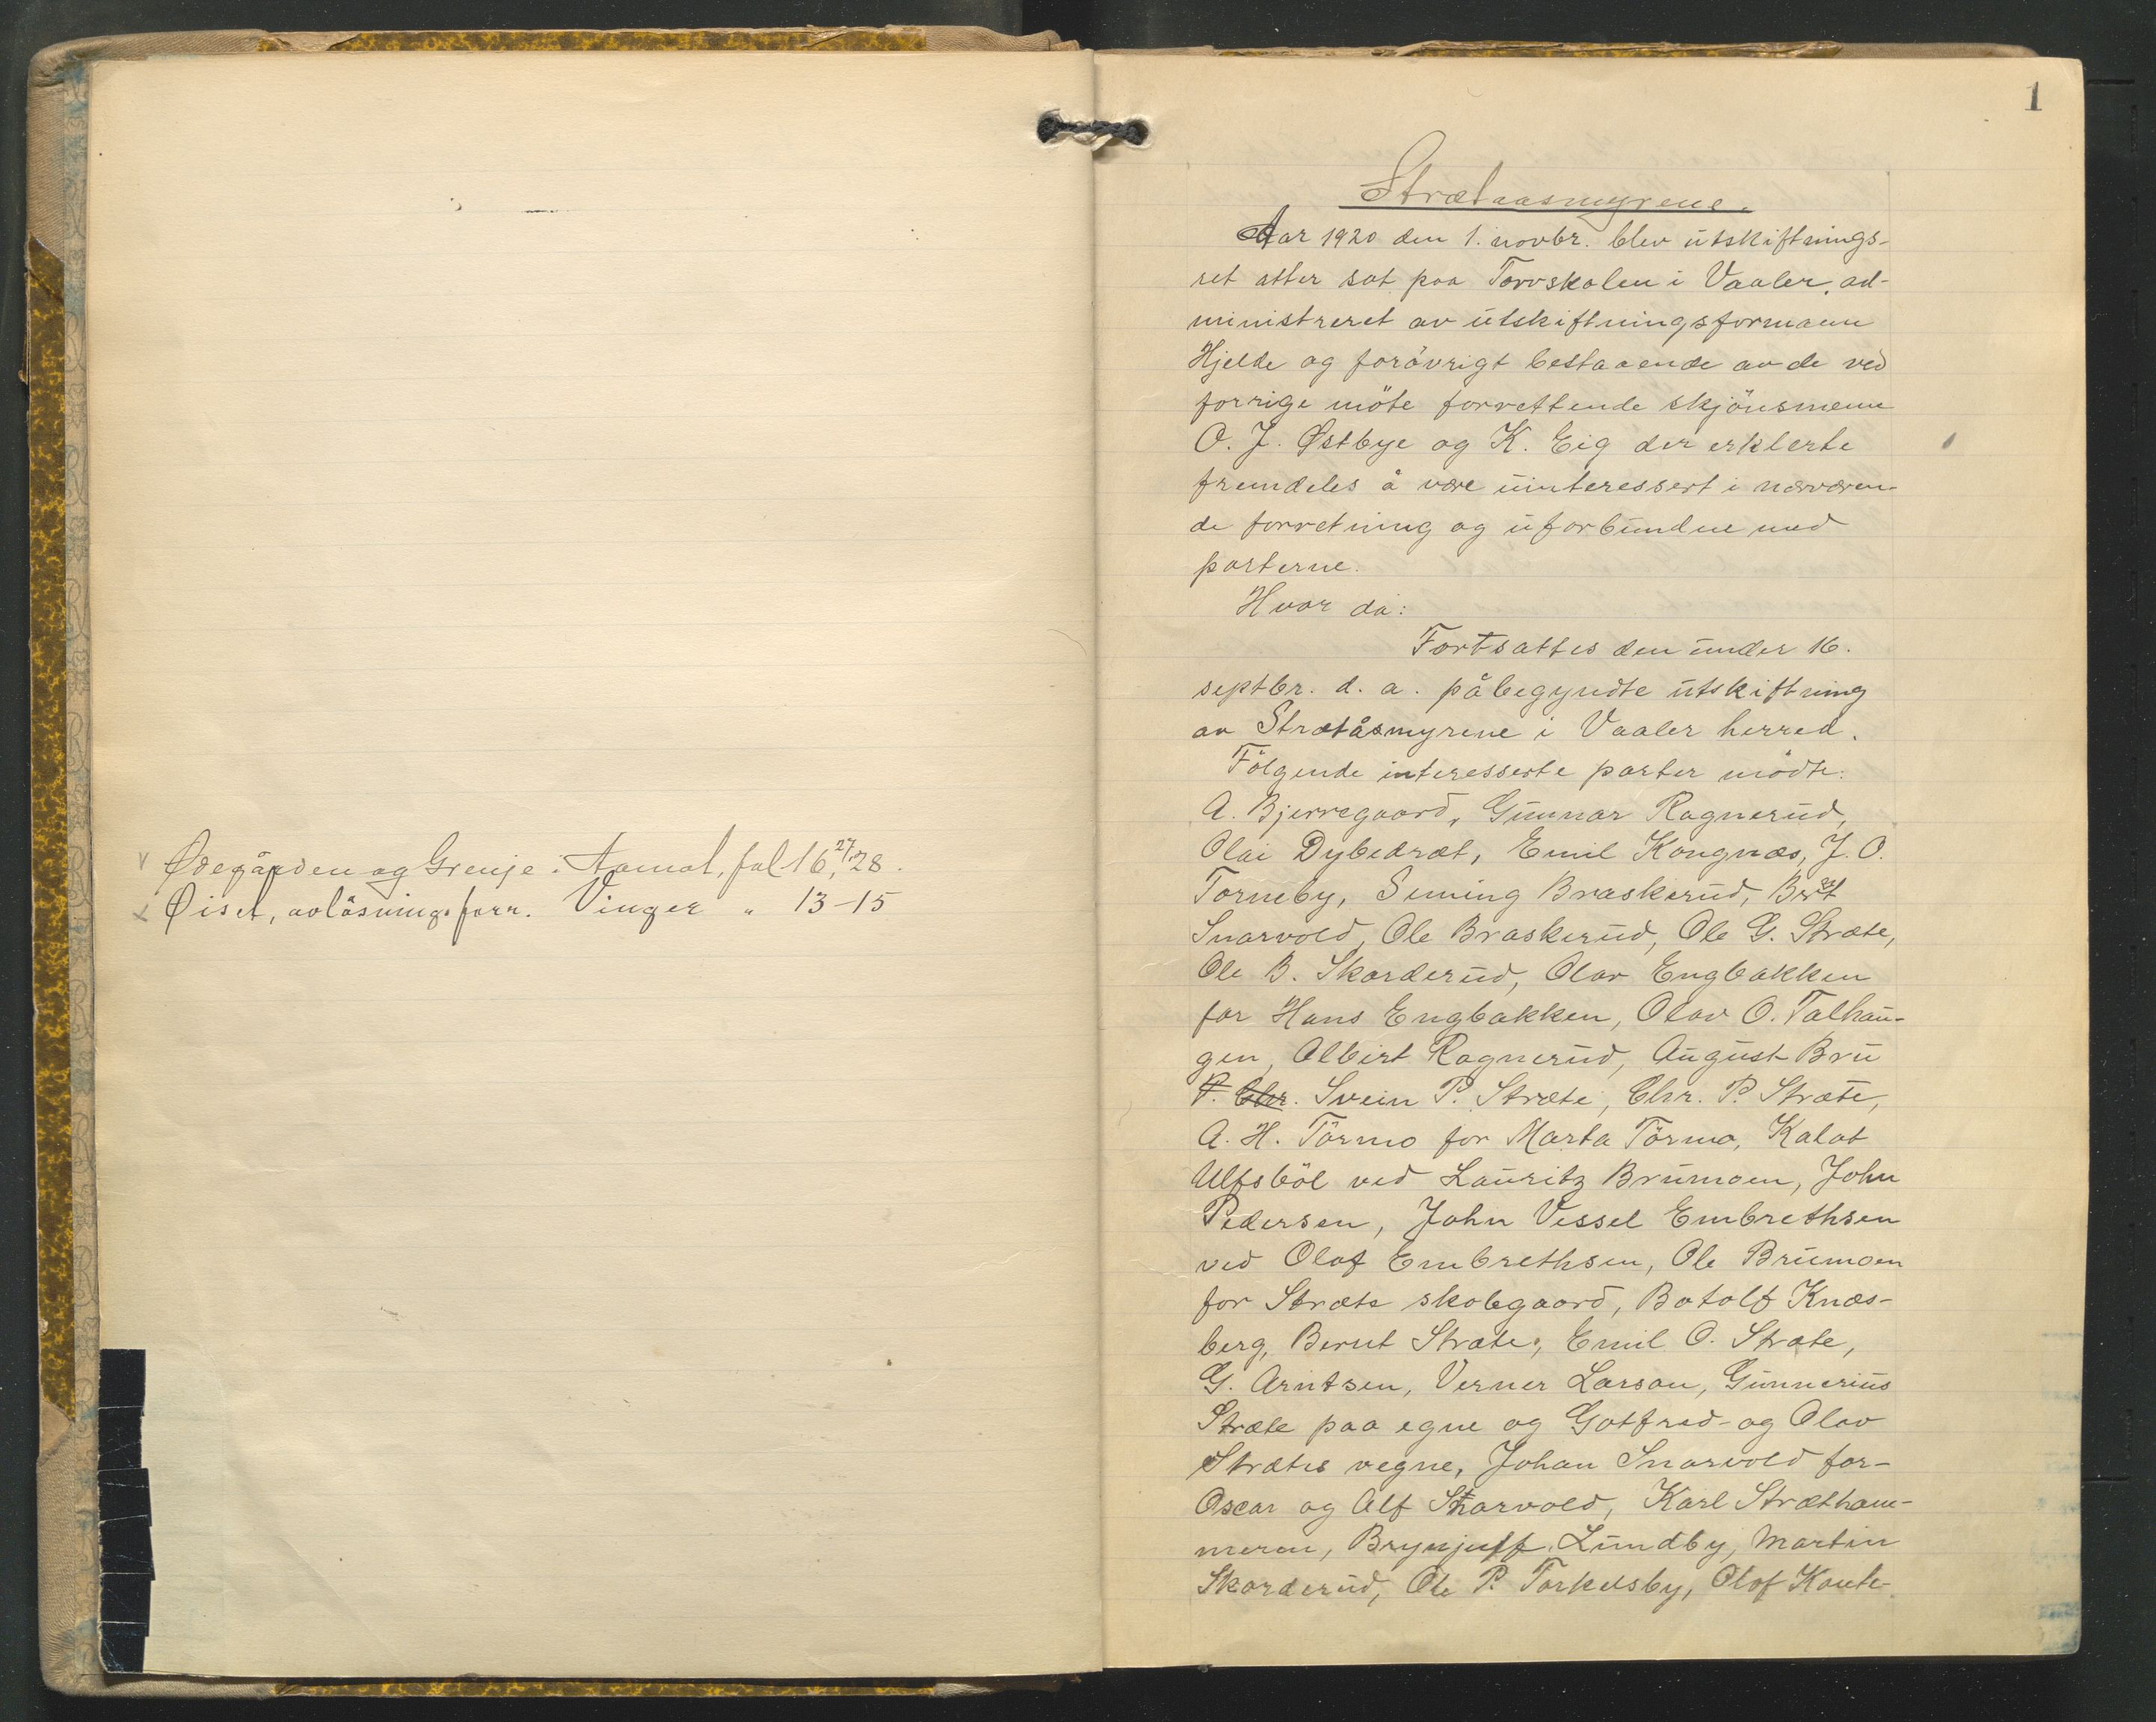 v Ødegården og Grenje i Aamot, fol 16, 27, 28.
x Øiset, avløsningsforr. Vinger " 13-15
1
Strætaasmyrene.
Aar 1920 den 1. novbr. blev utskiftnings-
ret atter sat paa Torvskolen i Vaaler, ad-
ministreret av utskiftningsformann
Hjelde og forövrigt bestaaende av de ved
forrige möte forrettende skjönsmenn
O. J. Østbye og K. Eig der erklerte
fremdeles å være uinteressert i nærværen-
de forretning og uforbundne med
parterne.
Hvor da:
Fortsattes den under 16.
septbr. d. a. påbegyndte utskiftning
av Stretåsmyrene i Vaaler herred.
Fölgende interesserte parter mödte:
A. Bjerregaard, Gunnar Ragnerud,
Olai Dybedræt, Emil Kongnæs, J. O.
Torneby, Seming Braskerud, Bernt
Snarvold, Ole Braskerud, Ole G. Stræte,
Ole B. Skarderud, Olav Engbakken
for Hans Engbakken, Olav O. Talhau-
gen, Albert Ragnerud, August Bru
P. Chr. Svein P. Stræte, Chr. P. Stræte,
A. H. Törmo for Marta Törmo, Kalat
Ulfsböl ved Lauritz Brumoen, John
Pedersen, John Vessel Embrethsen
ved Olaf Embrethsen, Ole Brumoen
for Stræte skolegaard, Botolf Knæs-
berg, Bernt Stræte, Emil O. Stræte,
G. Arntsen, Verner Larson, Gunnerius
Stræte paa egne og Gotfred- og Olav
Strætes vegne, Johan Snarvold for-
Oscar og Alf Snarvold, Karl Strætham-
meren, Brynjulf Lundby, Martin
Skarderud, Ole P. Torkelsby, Olof Kaute-